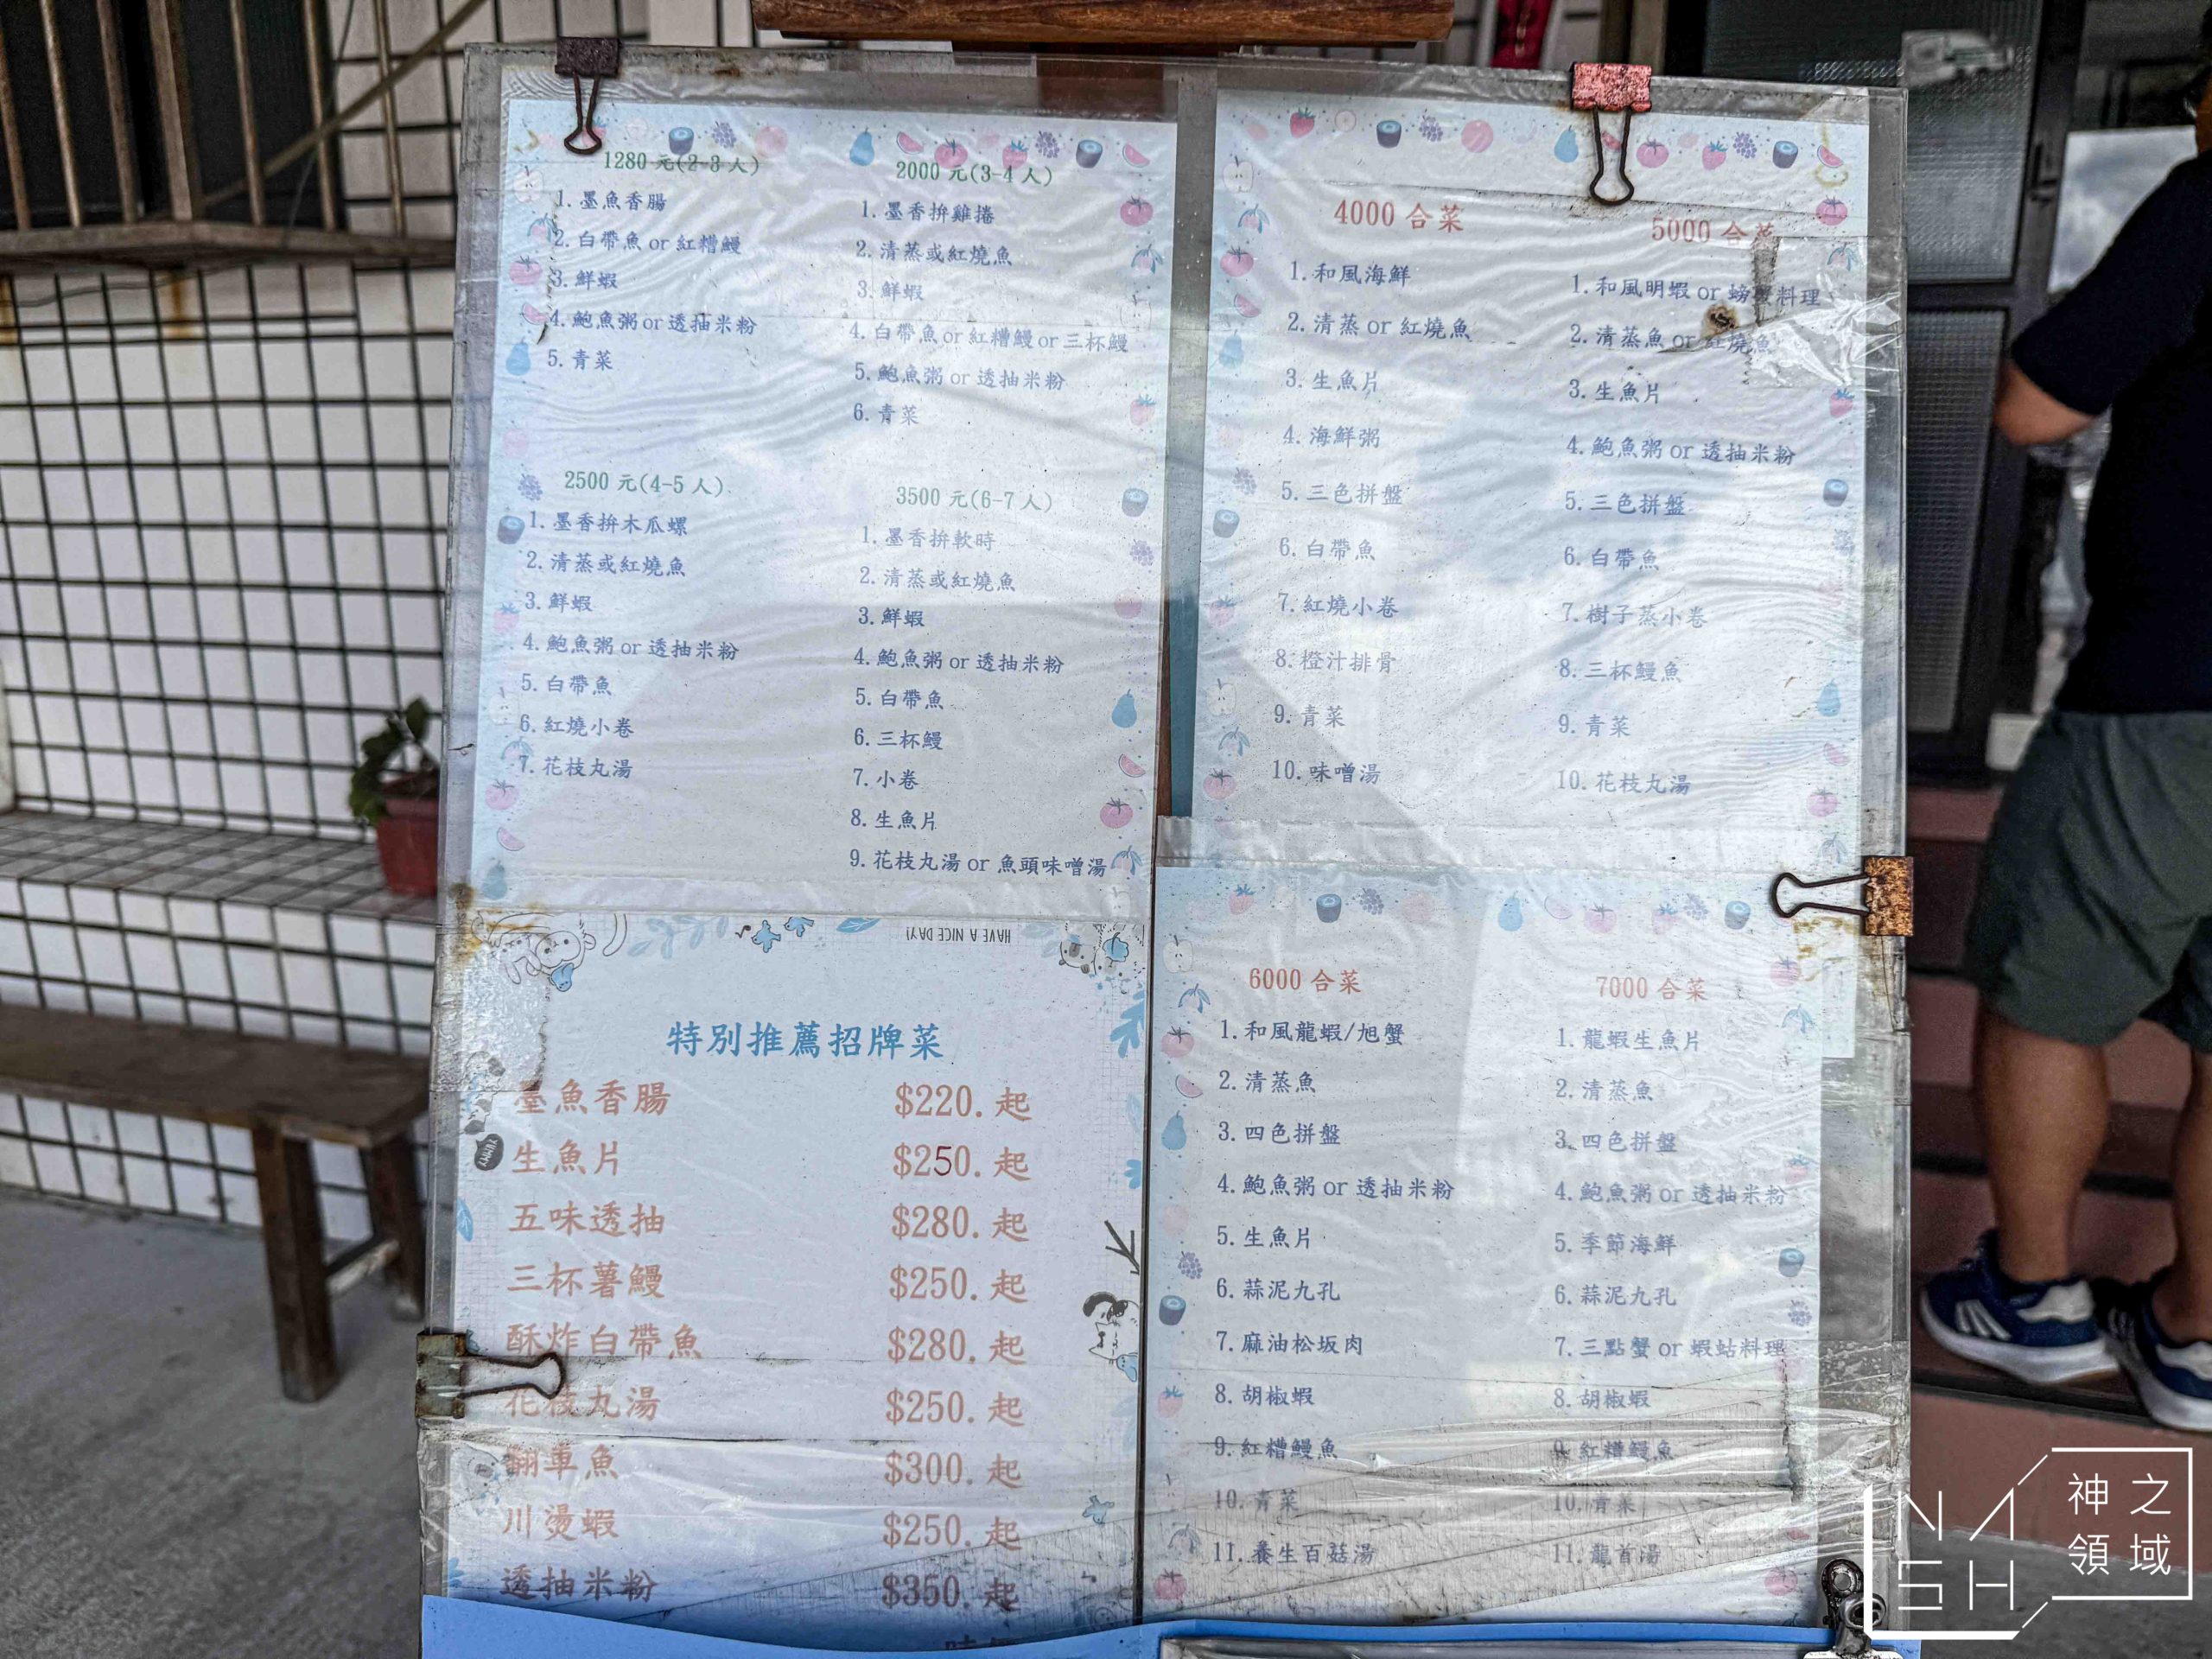 1280 元(2-3 人)
1. 墨魚香腸
2. 白帶魚 or 紅糟鰻
3. 鮮蝦
4. 鮑魚粥 or 透抽米粉
5. 青菜
2000 元(3-4 人)
1. 墨香拚雞捲
2. 清蒸或紅燒魚
3. 鮮蝦
4. 白帶魚 or 紅糟鰻 or 三杯鰻
5. 鮑魚粥 or 透抽米粉
6. 青菜
2500 元(4-5 人)
1. 墨香拚木瓜螺
2. 清蒸或紅燒魚
3. 鮮蝦
4. 鮑魚粥 or 透抽米粉
5. 白帶魚
6. 紅燒小卷
7. 花枝丸湯
3500 元(6-7 人)
1. 墨香拚軟時
2. 清蒸或紅燒魚
3. 鮮蝦
4. 鮑魚粥 or 透抽米粉
5. 白帶魚
6. 三杯鰻
7. 小卷
8. 生魚片
9. 花枝丸湯 or 魚頭味噌湯
4000 合菜
1. 和風海鮮
2. 清蒸 or 紅燒魚
3. 生魚片
4. 海鮮粥
5. 三色拼盤
6. 白帶魚
7. 紅燒小卷
8. 橙汁排骨
9. 青菜
10. 味噌湯
5000 合菜
1. 和風明蝦 or 螃蟹料理
2. 清蒸魚 or 紅燒魚
3. 生魚片
4. 鮑魚粥 or 透抽米粉
5. 三色拼盤
6. 白帶魚
7. 樹子蒸小卷
8. 三杯鰻魚
9. 青菜
10. 花枝丸湯
HAVE A NICE DAY!
特別推薦招牌菜
墨魚香腸 $220. 起
YUMMY
生魚片 $250. 起
五味透抽 $280. 起
三杯薯鰻 $250. 起
酥炸白帶魚 $280. 起
花枝丸湯 $250. 起
翻車魚 $300. 起
川燙蝦 $250. 起
透抽米粉 $350. 起
6000 合菜
1. 和風龍蝦/旭蟹
2. 清蒸魚
3. 四色拼盤
4. 鮑魚粥 or 透抽米粉
5. 生魚片
6. 蒜泥九孔
7. 麻油松坂肉
8. 胡椒蝦
9. 紅糟鰻魚
10. 青菜
11. 養生百菇湯
7000 合菜
1. 龍蝦生魚片
2. 清蒸魚
3. 四色拼盤
4. 鮑魚粥 or 透抽米粉
5. 季節海鮮
6. 蒜泥九孔
7. 三點蟹 or 蝦蛄料理
8. 胡椒蝦
9. 紅糟鰻魚
10. 青菜
11. 龍首湯
NASH
神之
領域